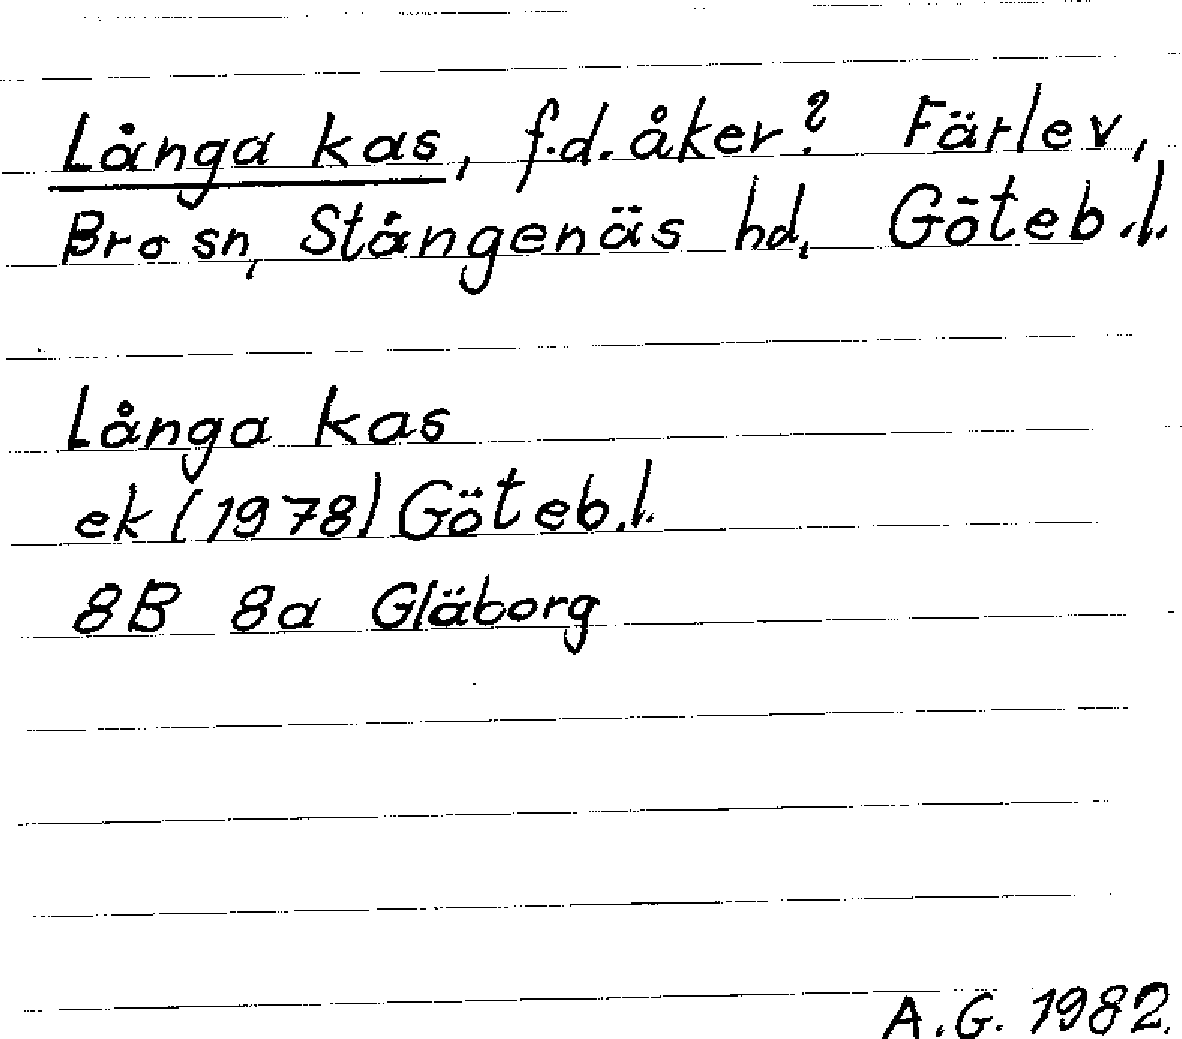 Långa kas, f.d. åker? Färlev,
Bro sn, Stångenäs hd, Göteb.l.
Långa kas
ek (1978) Göteb.l.
8B 8a Gläborg
A.G. 1982.